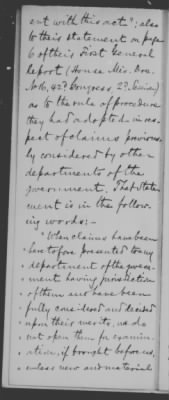 ent with this act."; also
to their statement on page
6 of their First General
Report (House Mis. Doc.
No. 16, 42d. Congress, 2d. Session)
as to the rule of procedure
they had adopted in res-
pect of claims previous-
ly considered by other
departments of the
government. That state-
ment is in the follow-
ing words:-
"When claims have been
"heretofore presented to any
"department of the govern-
"ment having jurisdiction
"of them and have been
"fully considered and decided
"upon their merits, we do
"not open them for examin-
"ation, if brought before us,
"unless new and material